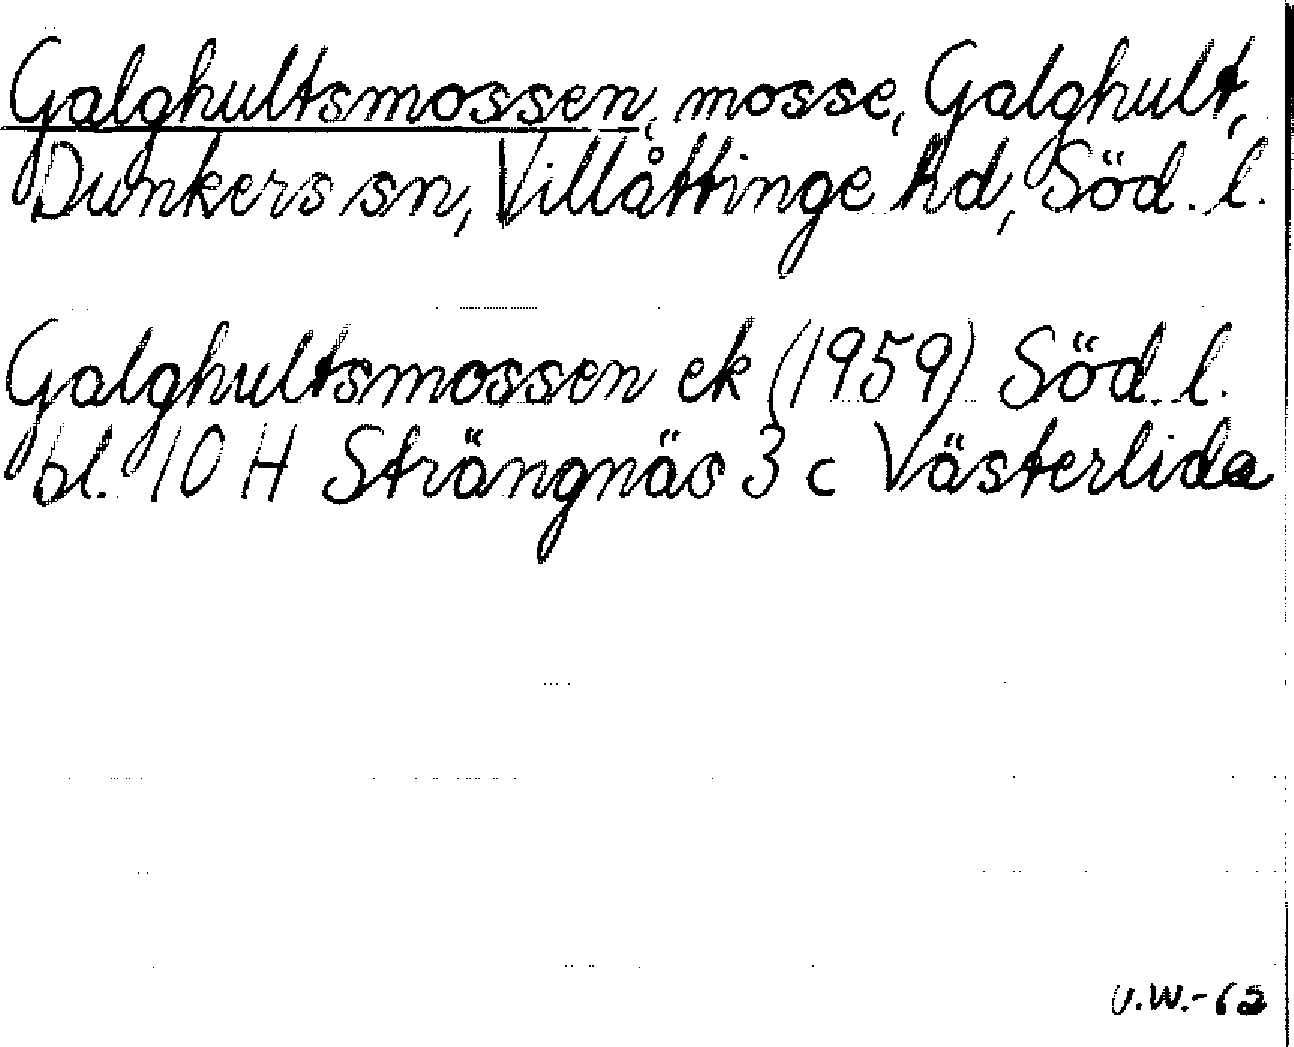 Galghultsmossen, mosse, Galghult,
Dunkers sn, Villåttinge hd, Söd. l.
Galghultsmossen ek (1959) Söd. l.
bl. 10 H Strängnäs 3 c Västerlida
U.W.-62